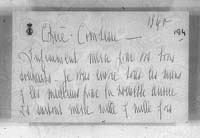 Chère Comtesse —
Infiniment merci pour vos bons
souhaits. Je vous envoie tous les miens
et les meilleurs pour la nouvelle année
et surtout merci mille et mille fois